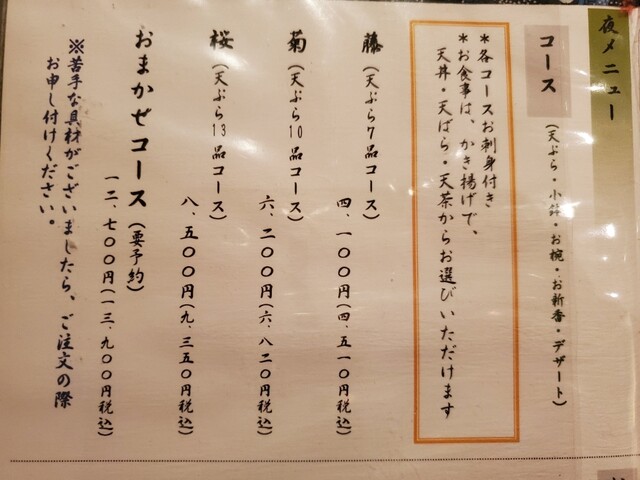 夜メニュー
コース
(天ぷら・小鉢・お椀・お新香・デザート)
*各コースお刺身付き
*お食事は、かき揚げで、
天丼・天ばら・天茶からお選びいただけます
藤(天ぷら7品コース)
四、一〇〇円(四、五一〇円税込)
菊(天ぷら10品コース)
六、二〇〇円(六、八二〇円税込)
桜(天ぷら13品コース)
八、五〇〇円(九、三五〇円税込)
おまかせコース(要予約)
一二、七〇〇円(一三、九〇〇円税込)
※苦手な具材がございましたら、ご注文の際
お申し付けください。